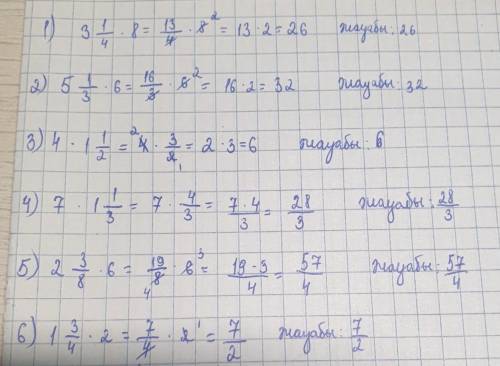 1) 3 1/4 · 8 = 13/4 · 8² = 13 · 2 = 26 жауабы: 26
2) 5 1/3 · 6 = 16/3 · 6² = 16 · 2 = 32 жауабы: 32
3) 4 · 1 1/2 = ²4 · 3/2₁ = 2 · 3 = 6 жауабы: 6
4) 7 · 1 1/3 = 7 · 4/3 = 7 · 4/3 = 28/3 жауабы: 28/3
5) 2 3/8 · 6 = 19/8₄ · 6³ = 19 · 3/4 = 57/4 жауабы: 57/4
6) 1 3/4 · 2 = 7/4 · 2¹ = 7/2 жауабы: 7/2